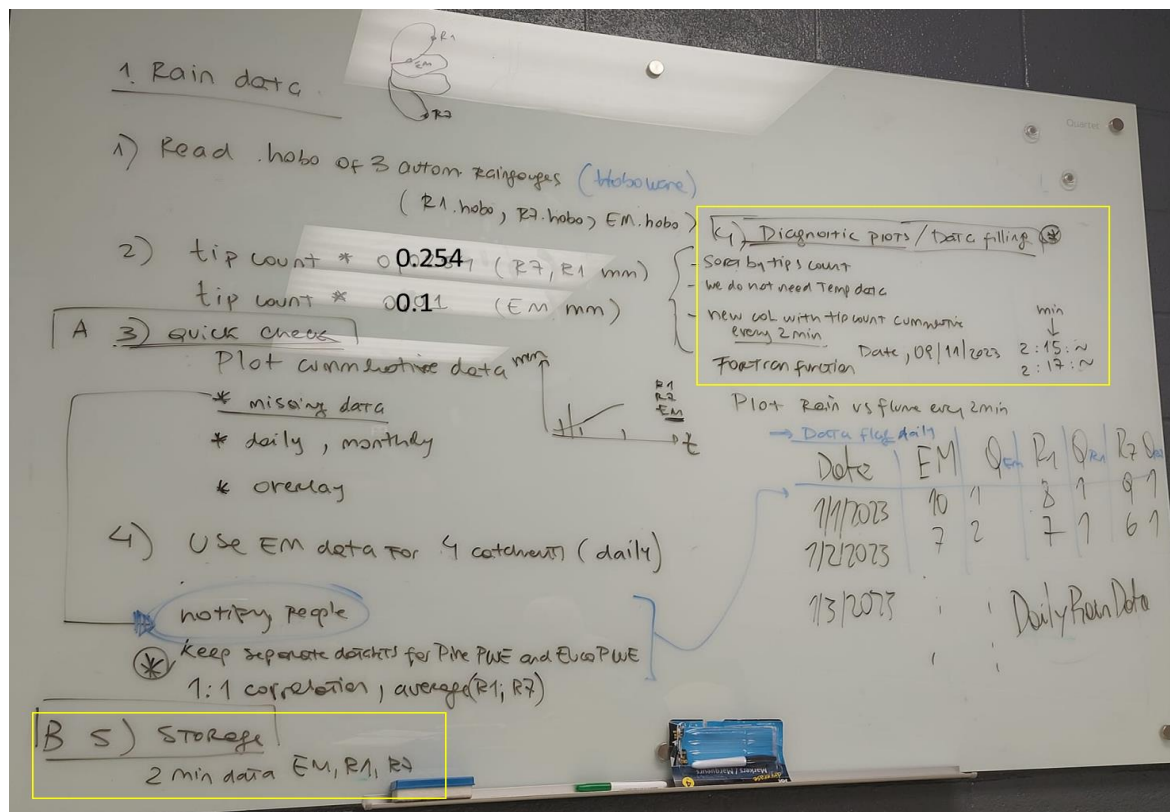 1. Rain data
R1
EM
R7
1) Read .hobo of 3 autom. Raingouges (Hoboware)
(R1.hobo, R7.hobo, EM.hobo)
2) tip count * 0.254 (R7, R1 mm)
tip count * 0.1 (EM mm)
A 3) Quick check
Plot cummulative data
mm
t
R1
R7
EM
* missing data
* daily, monthly
* overlay
4) Use EM data for 4 catchments (daily)
notify people
* Keep separate datasets for Pine PWE and Euca PWE
1:1 correlation, average(R1; R7)
B 5) Storage
2 min data EM, R1, R7
Quartet
Diagnostic plots / Data filling *
- Sort by tips count
- we do not need Temp data
- new col with tip count cummulative
every 2 min
Date, 09/11/2023
min
2:15:~
2:17:~
Fortran function
Plot Rain vs flume every 2min
→ Data flag daily
Date | EM | QEM | R1 | QR1 | R7 QR7
1/1/2023 10 1 8 1 9 1
1/2/2023 7 2 7 1 6 1
1/3/2023
DailyRainData
Markers / Marqueurs
4